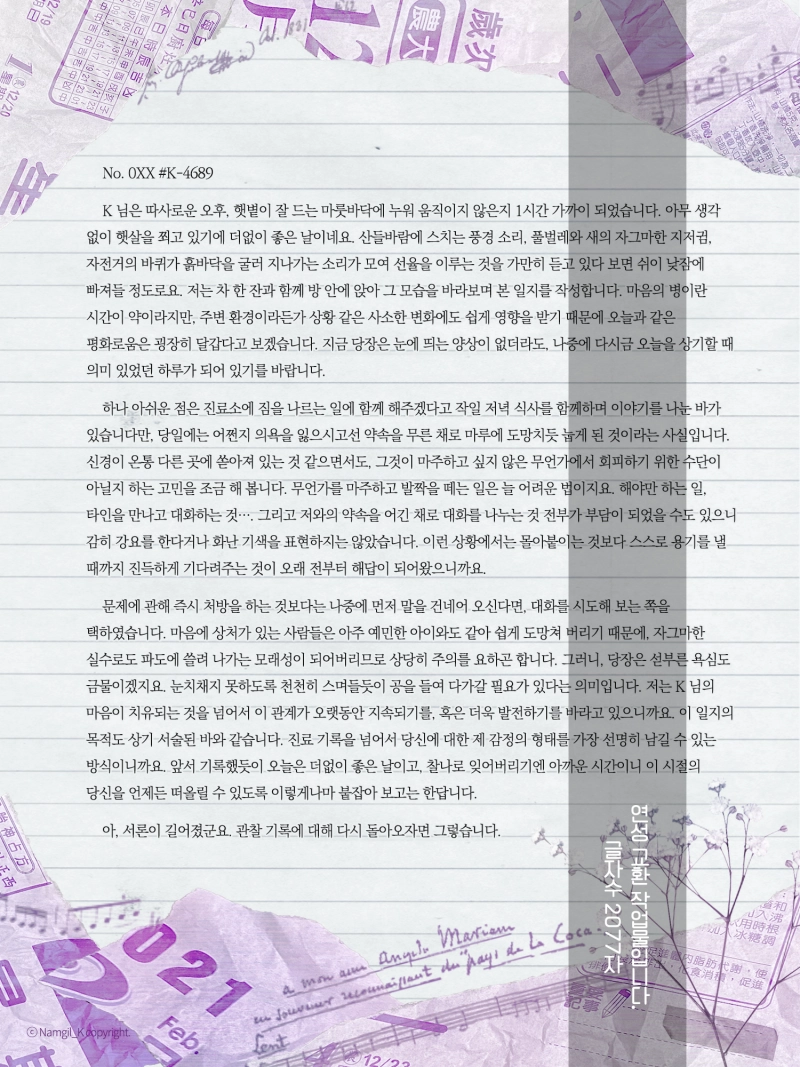 No. 0XX #K-4689
K 님은 따사로운 오후, 햇볕이 잘 드는 마룻바닥에 누워 움직이지 않은지 1시간 가까이 되었습니다. 아무 생각
없이 햇살을 쬐고 있기에 더없이 좋은 날이네요. 산들바람에 스치는 풍경 소리, 풀벌레와 새의 자그마한 지저귐,
자전거의 바퀴가 흙바닥을 굴러 지나가는 소리가 모여 선율을 이루는 것을 가만히 듣고 있다 보면 쉬이 낮잠에
빠져들 정도로요. 저는 차 한 잔과 함께 방 안에 앉아 그 모습을 바라보며 본 일지를 작성합니다. 마음의 병이란
시간이 약이라지만, 주변 환경이라든가 상황 같은 사소한 변화에도 쉽게 영향을 받기 때문에 오늘과 같은
평화로움은 굉장히 달갑다고 보겠습니다. 지금 당장은 눈에 띄는 양상이 없더라도, 나중에 다시금 오늘을 상기할 때
의미 있었던 하루가 되어 있기를 바랍니다.
하나 아쉬운 점은 진료소에 짐을 나르는 일에 함께 해주겠다고 작일 저녁 식사를 함께하며 이야기를 나눈 바가
있습니다만, 당일에는 어쩐지 의욕을 잃으시고선 약속을 무른 채로 마루에 도망치듯 눕게 된 것이라는 사실입니다.
신경이 온통 다른 곳에 쏟아져 있는 것 같으면서도, 그것이 마주하고 싶지 않은 무언가에서 회피하기 위한 수단이
아닐지 하는 고민을 조금 해 봅니다. 무언가를 마주하고 발짝을 떼는 일은 늘 어려운 법이지요. 해야만 하는 일,
타인을 만나고 대화하는 것…. 그리고 저와의 약속을 어긴 채로 대화를 나누는 것 전부가 부담이 되었을 수도 있으니
감히 강요를 한다거나 화난 기색을 표현하지는 않았습니다. 이런 상황에서는 몰아붙이는 것보다 스스로 용기를 낼
때까지 진득하게 기다려주는 것이 오래 전부터 해답이 되어왔으니까요.
문제에 관해 즉시 처방을 하는 것보다는 나중에 먼저 말을 건네어 오신다면, 대화를 시도해 보는 쪽을
택하였습니다. 마음에 상처가 있는 사람들은 아주 예민한 아이와도 같아 쉽게 도망쳐 버리기 때문에, 자그마한
실수로도 파도에 쓸려 나가는 모래성이 되어버리므로 상당히 주의를 요하곤 합니다. 그러니, 당장은 섣부른 욕심도
금물이겠지요. 눈치채지 못하도록 천천히 스며들듯이 공을 들여 다가갈 필요가 있다는 의미입니다. 저는 K 님의
마음이 치유되는 것을 넘어서 이 관계가 오랫동안 지속되기를, 혹은 더욱 발전하기를 바라고 있으니까요. 이 일지의
목적도 상기 서술된 바와 같습니다. 진료 기록을 넘어서 당신에 대한 제 감정의 형태를 가장 선명히 남길 수 있는
방식이니까요. 앞서 기록했듯이 오늘은 더없이 좋은 날이고, 찰나로 잊어버리기엔 아까운 시간이니 이 시절의
당신을 언제든 떠올릴 수 있도록 이렇게나마 붙잡아 보고는 한답니다.
아, 서론이 길어졌군요. 관찰 기록에 대해 다시 돌아오자면 그렇습니다.
연성 교환 작업물입니다.
글자수 2077자
021
Feb.
a mon ami Angelo Mariani
en souvenir reconnaissant du "pays de La Coca.
12/23
ⓒ Namgil_K copyright.